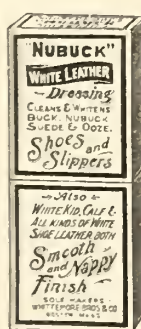 "NUBUCK"
WHITE LEATHER
Dressing
CLEANS & WHITENS
BUCK. NUBUCK
SUEDE & OOZE.
Shoes and
Slippers
Also
WHITE KID, CALF &
ALL KINDS OF WHITE
SHOE LEATHER BOTH
Smooth
and Nappy
Finish
SOLE MAKERS
WHITTEMORE BROS & CO
BOSTON MASS